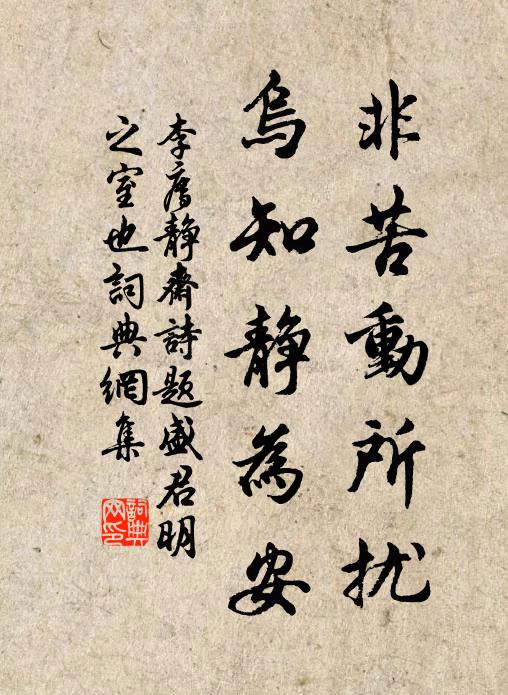 非苦動所扰
烏知静為安
李廌静齋詩題盛君明
之室也詞典網集
詞典
网印